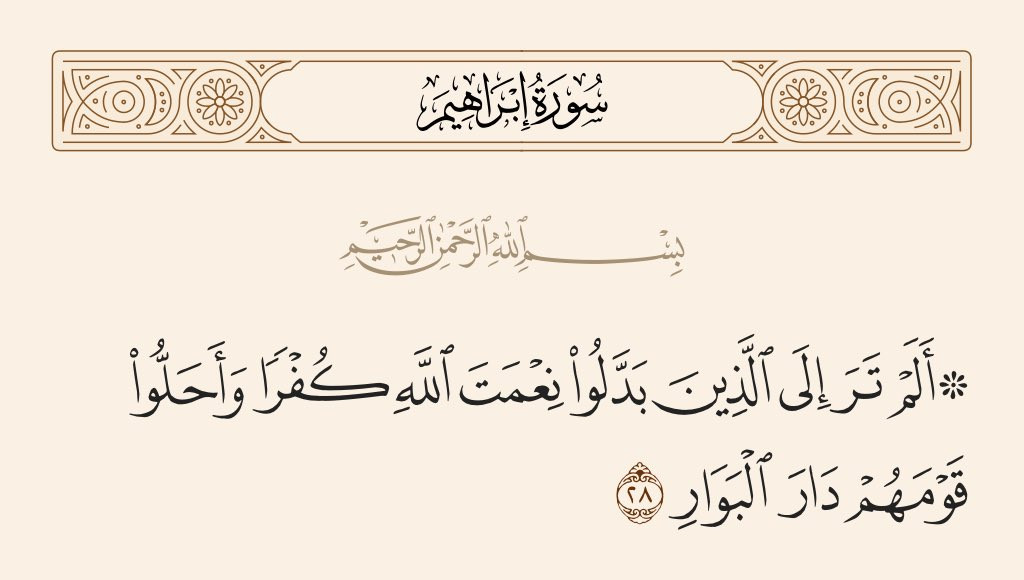 سُورَةُ إِبْرَاهِيمَ
بِسْمِ ٱللَّهِ ٱلرَّحْمَٰنِ ٱلرَّحِيمِ
۞ أَلَمْ تَرَ إِلَى ٱلَّذِينَ بَدَّلُوا۟ نِعْمَتَ ٱللَّهِ كُفْرًا وَأَحَلُّوا۟
قَوْمَهُمْ دَارَ ٱلْبَوَارِ ٢٨